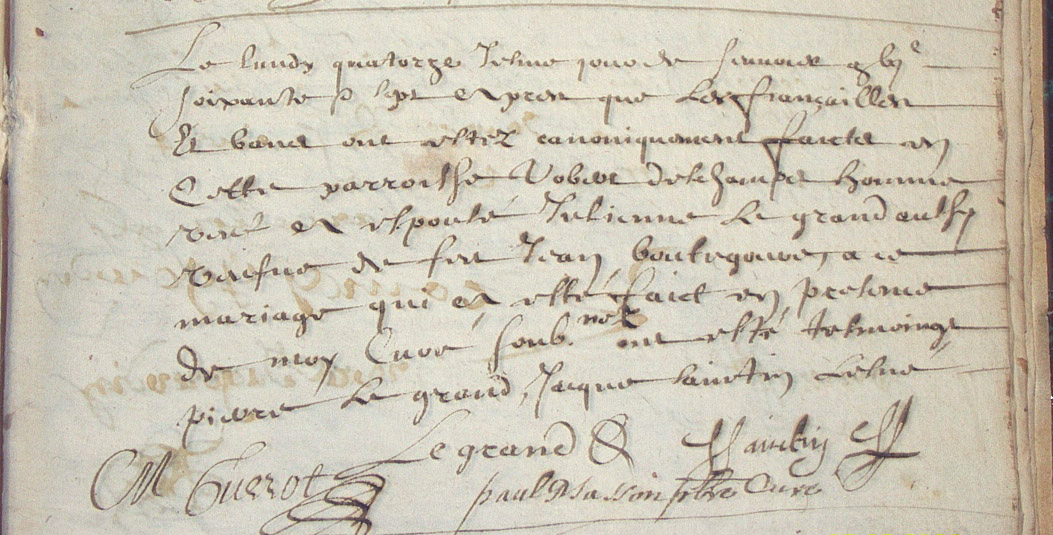 Le lundy quatorze Jesme jour de feuvrier g bjc
soixante & sept apres que Les fiançailles
Et bans ont estez canoniquement faicts en
Cette parroisse Robert deschamps homme
veuf a espouté Estienne Le grand aussy
veufue de feu Jean ce
mariage qui a esté faict en presence
de moy Curé soub. nez ont esté tesmoings
pierre Le grand, Jacque sainctin
Le grand Sainctin
M Guerrot paul Masson pbre Curé